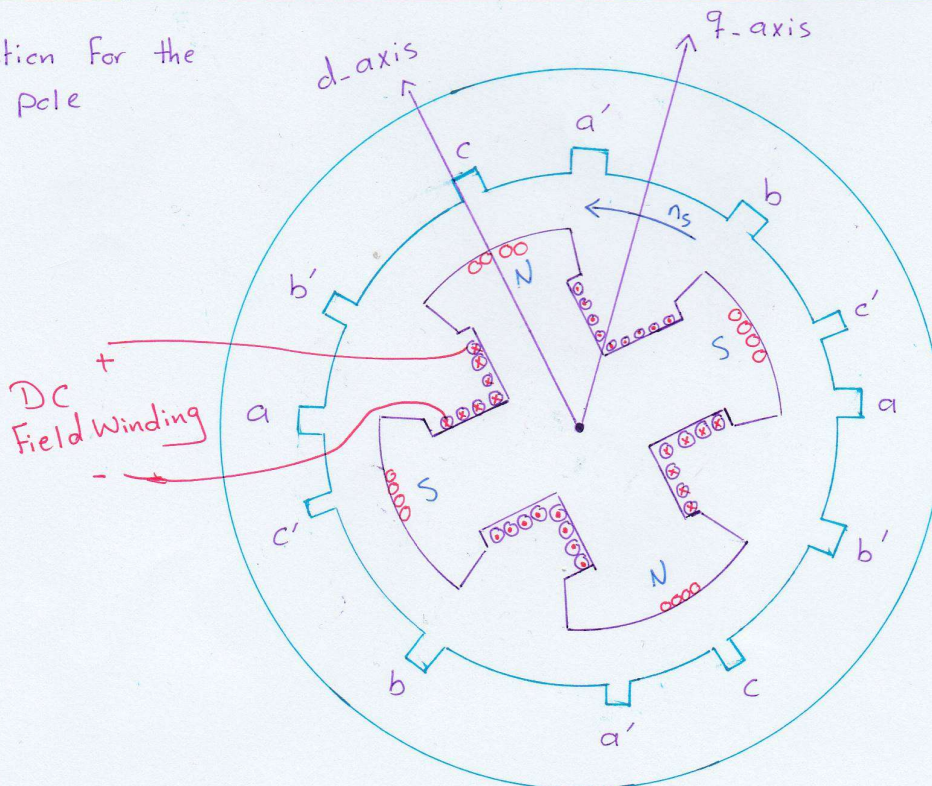 tion For the
pole
d-axis
q-axis
a'
c
b
ns
b'
N
c'
S
+
DC
Field Winding
-
a
a
S
c'
b'
N
b
c
a'